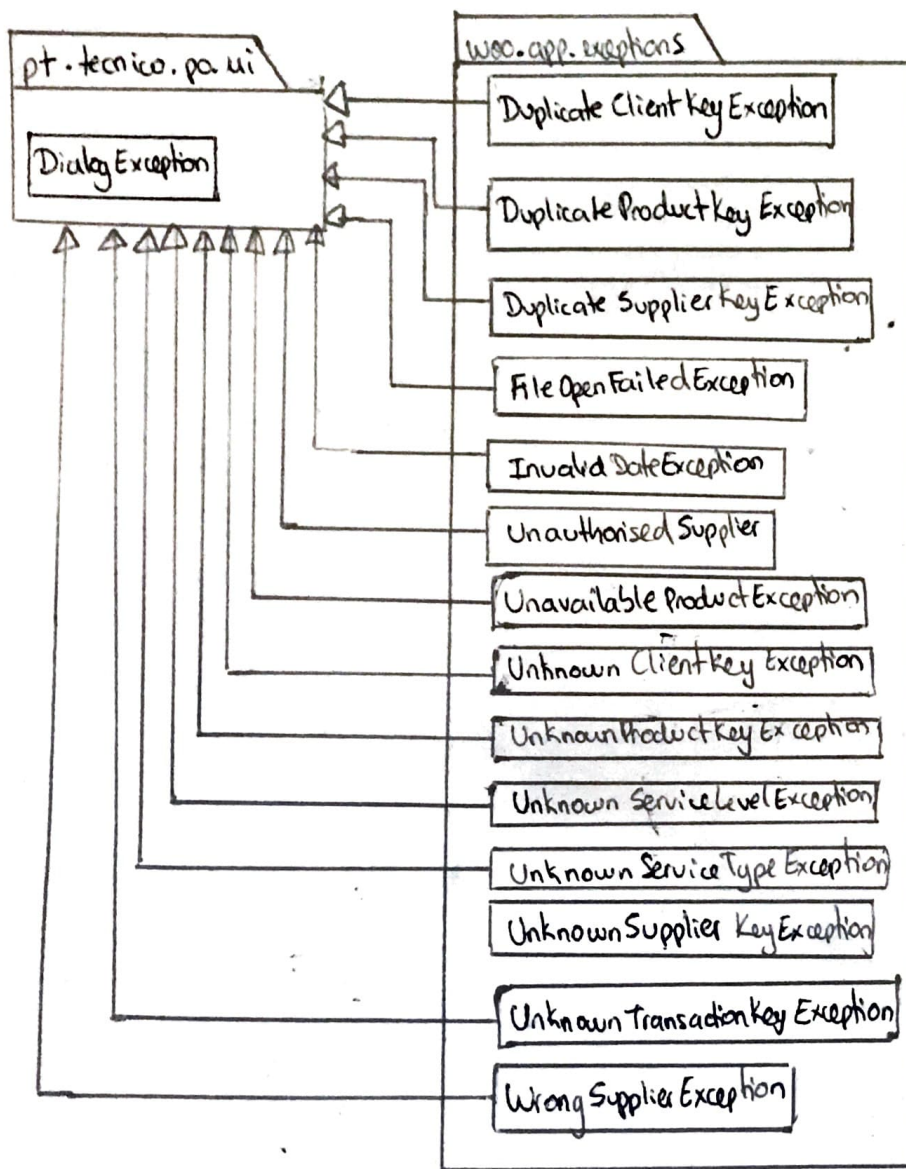 pt.tecnico.po.ui
DialogException
woo.app.exeptions
Duplicate Client Key Exception
Duplicate Product Key Exception
Duplicate Supplier Key Exception
File Open Failed Exception
Invalid Date Exception
Unauthorised Supplier
Unavailable Product Exception
Unknown Client Key Exception
Unknown Product Key Exception
Unknown Service Level Exception
Unknown Service Type Exception
Unknown Supplier Key Exception
Unknown Transaction Key Exception
Wrong Supplier Exception